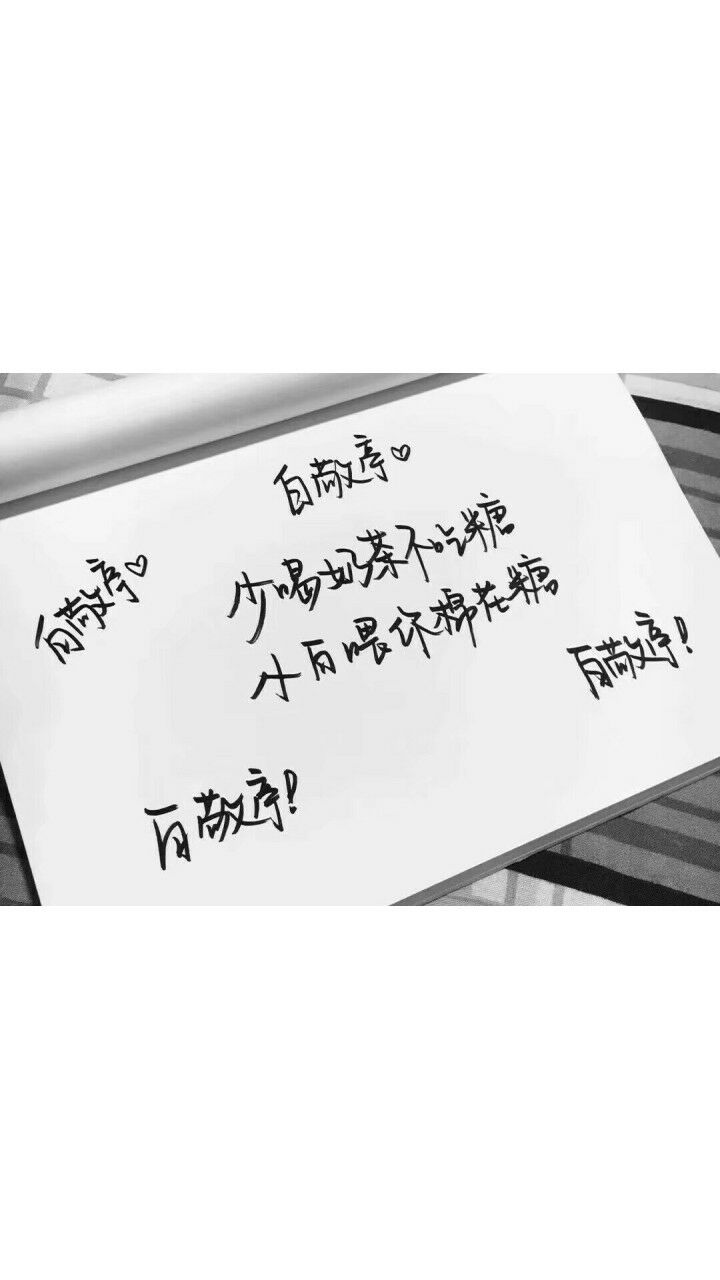 白敬亭♡
白敬亭♡
少喝奶茶不吃糖
小白喂你棉花糖
白敬亭!
白敬亭!